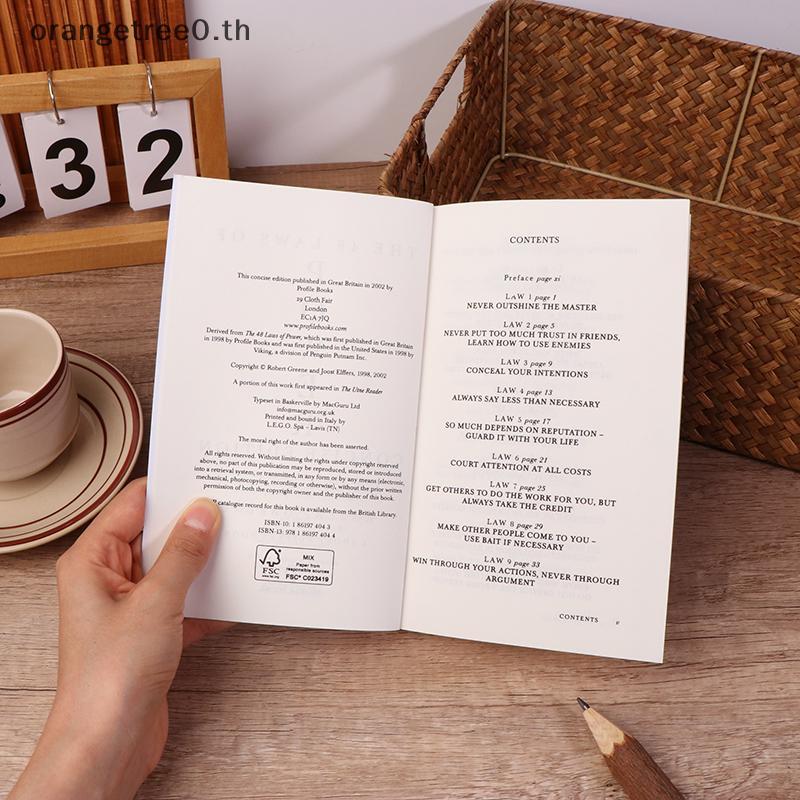 orangetree0.th
3
2
This concise edition published in Great Britain in 2002 by
Profile Books
29 Cloth Fair
London
EC1A 7JQ
www.profilebooks.com
Derived from The 48 Laws of Power, which was first published in Great Britain
in 1998 by Profile Books and was first published in the United States in 1998 by
Viking, a division of Penguin Putnam Inc.
Copyright © Robert Greene and Joost Elffers, 1998, 2002
A portion of this work first appeared in The Utne Reader
Typeset in Baskerville by MacGuru Ltd
info@macguru.org.uk
Printed and bound in Italy by
L.E.G.O. Spa – Lavis (TN)
The moral right of the author has been asserted.
All rights reserved. Without limiting the rights under copyright reserved
above, no part of this publication may be reproduced, stored or introduced
into a retrieval system, or transmitted, in any form or by any means (electronic,
mechanical, photocopying, recording or otherwise), without the prior written
permission of both the copyright owner and the publisher of this book.
catalogue record for this book is available from the British Library.
ISBN-10: 1 86197 404 3
ISBN-13: 978 1 86197 404 4
FSC
www.fsc.org
MIX
Paper from
responsible sources
FSC® C023419
CONTENTS
Preface page xi
LAW 1 page 1
NEVER OUTSHINE THE MASTER
LAW 2 page 5
NEVER PUT TOO MUCH TRUST IN FRIENDS,
LEARN HOW TO USE ENEMIES
LAW 3 page 9
CONCEAL YOUR INTENTIONS
LAW 4 page 13
ALWAYS SAY LESS THAN NECESSARY
LAW 5 page 17
SO MUCH DEPENDS ON REPUTATION –
GUARD IT WITH YOUR LIFE
LAW 6 page 21
COURT ATTENTION AT ALL COSTS
LAW 7 page 25
GET OTHERS TO DO THE WORK FOR YOU, BUT
ALWAYS TAKE THE CREDIT
LAW 8 page 29
MAKE OTHER PEOPLE COME TO YOU –
USE BAIT IF NECESSARY
LAW 9 page 33
WIN THROUGH YOUR ACTIONS, NEVER THROUGH
ARGUMENT
CONTENTS